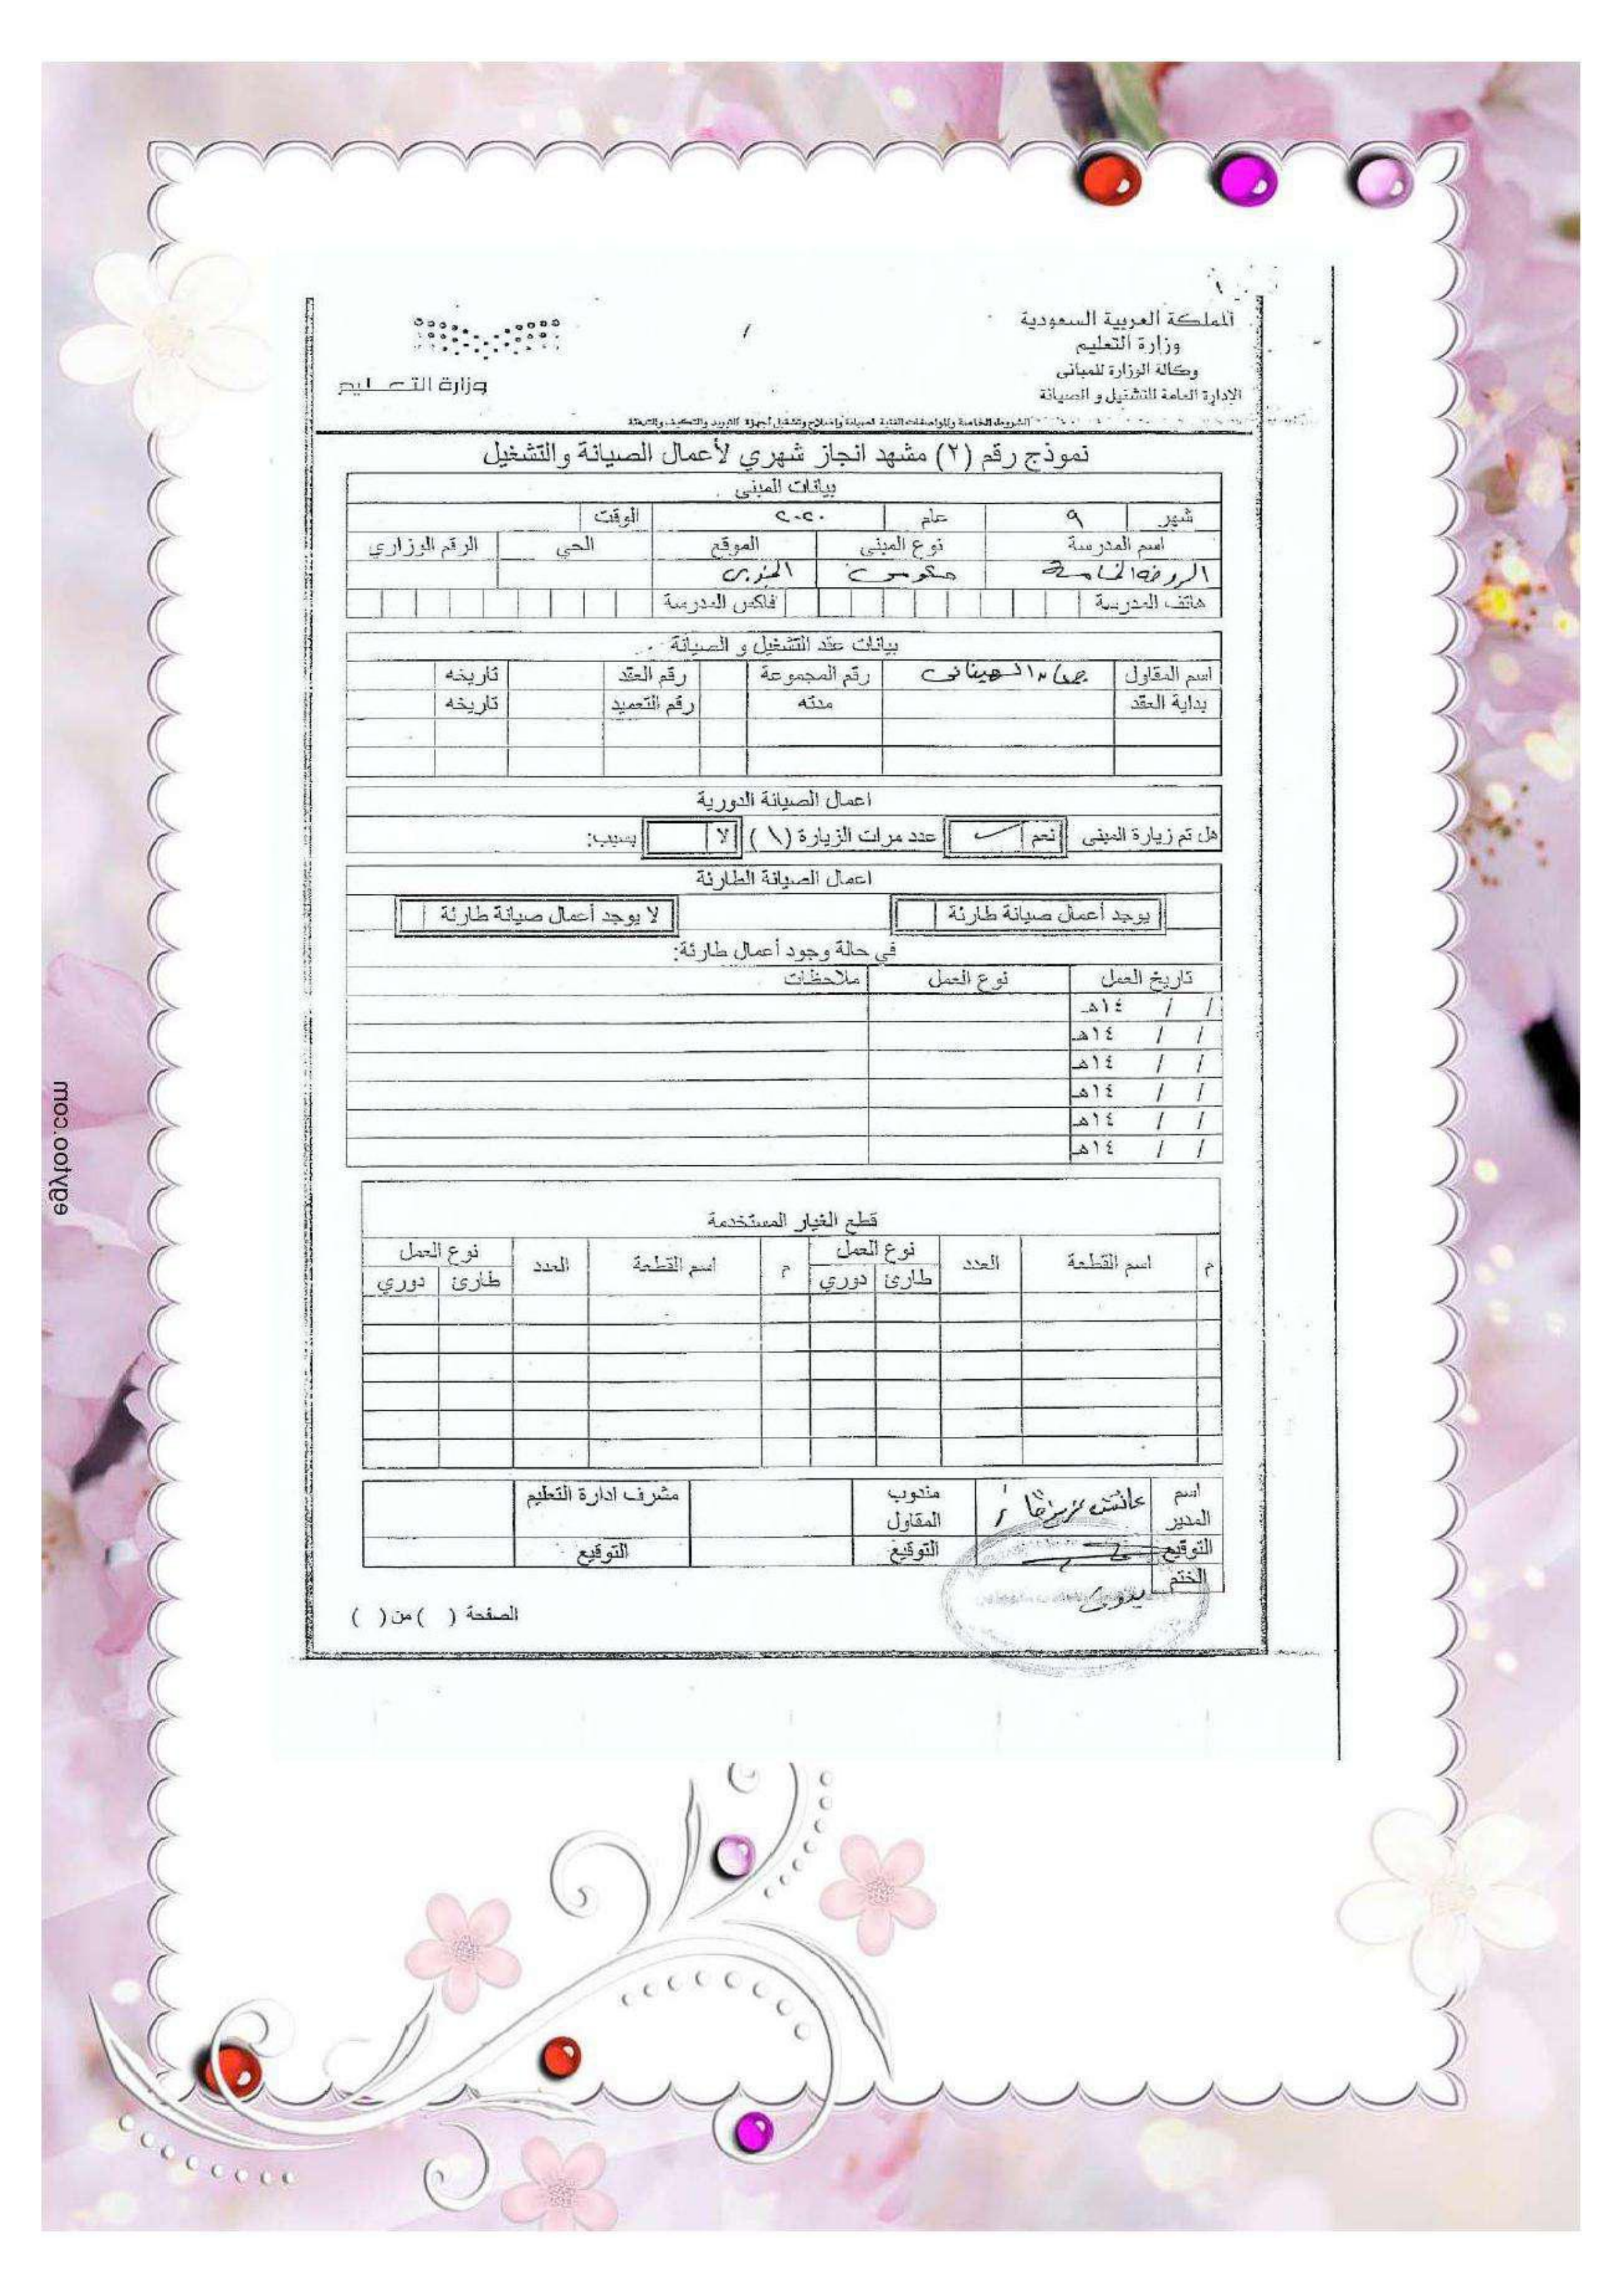 المملكة العربية السعودية
وزارة التعليم
وكالة الوزارة للمباني
الادارة العامة للتشغيل و الصيانة
وزارة التعليم
الشروط الخاصة والمواصفات الفنية لصيانة واصلاح وتشغيل أجهزة التبريد والتكييف
نموذج رقم (٢) مشهد انجاز شهري لأعمال الصيانة والتشغيل
بيانات المبنى
شهر ٩ عام ٢٠٢٠ الوقت
اسم المدرسة نوع المبنى الموقع الحي الرقم الوزاري
الروضة الخامسة حكومي
هاتف المدرسة فاكس المدرسة
بيانات عقد التشغيل و الصيانة
اسم المقاول رقم المجموعة رقم العقد تاريخه
بداية العقد مدته رقم التعميد تاريخه
اعمال الصيانة الدورية
هل تم زيارة المبنى نعم عدد مرات الزيارة (١) لا بسبب:
اعمال الصيانة الطارئة
يوجد أعمال صيانة طارئة لا يوجد أعمال صيانة طارئة
في حالة وجود أعمال طارئة:
تاريخ العمل نوع العمل ملاحظات
/ / ١٤هـ
/ / ١٤هـ
/ / ١٤هـ
/ / ١٤هـ
/ / ١٤هـ
/ / ١٤هـ
قطع الغيار المستخدمة
م اسم القطعة العدد نوع العمل م اسم القطعة العدد نوع العمل
طارئ دوري طارئ دوري
اسم المدير مندوب المقاول مشرف ادارة التعليم
التوقيع التوقيع التوقيع
الختم
الصفحة ( ) من ( )
egytoo.com